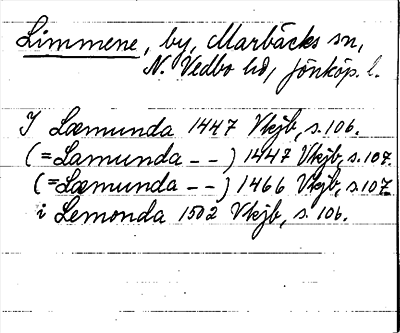 Limmene, by, Marbäcks sn,
N. Vedbo hd, Jönköp. l.
I Læmunda 1447 Vkjb, s. 106.
(= Lamunda - - ) 1447 Vkjb, s. 107.
(= Læmunda - - ) 1466 Vkjb, s. 107.
i Lemonda 1502 Vkjb, s. 106.